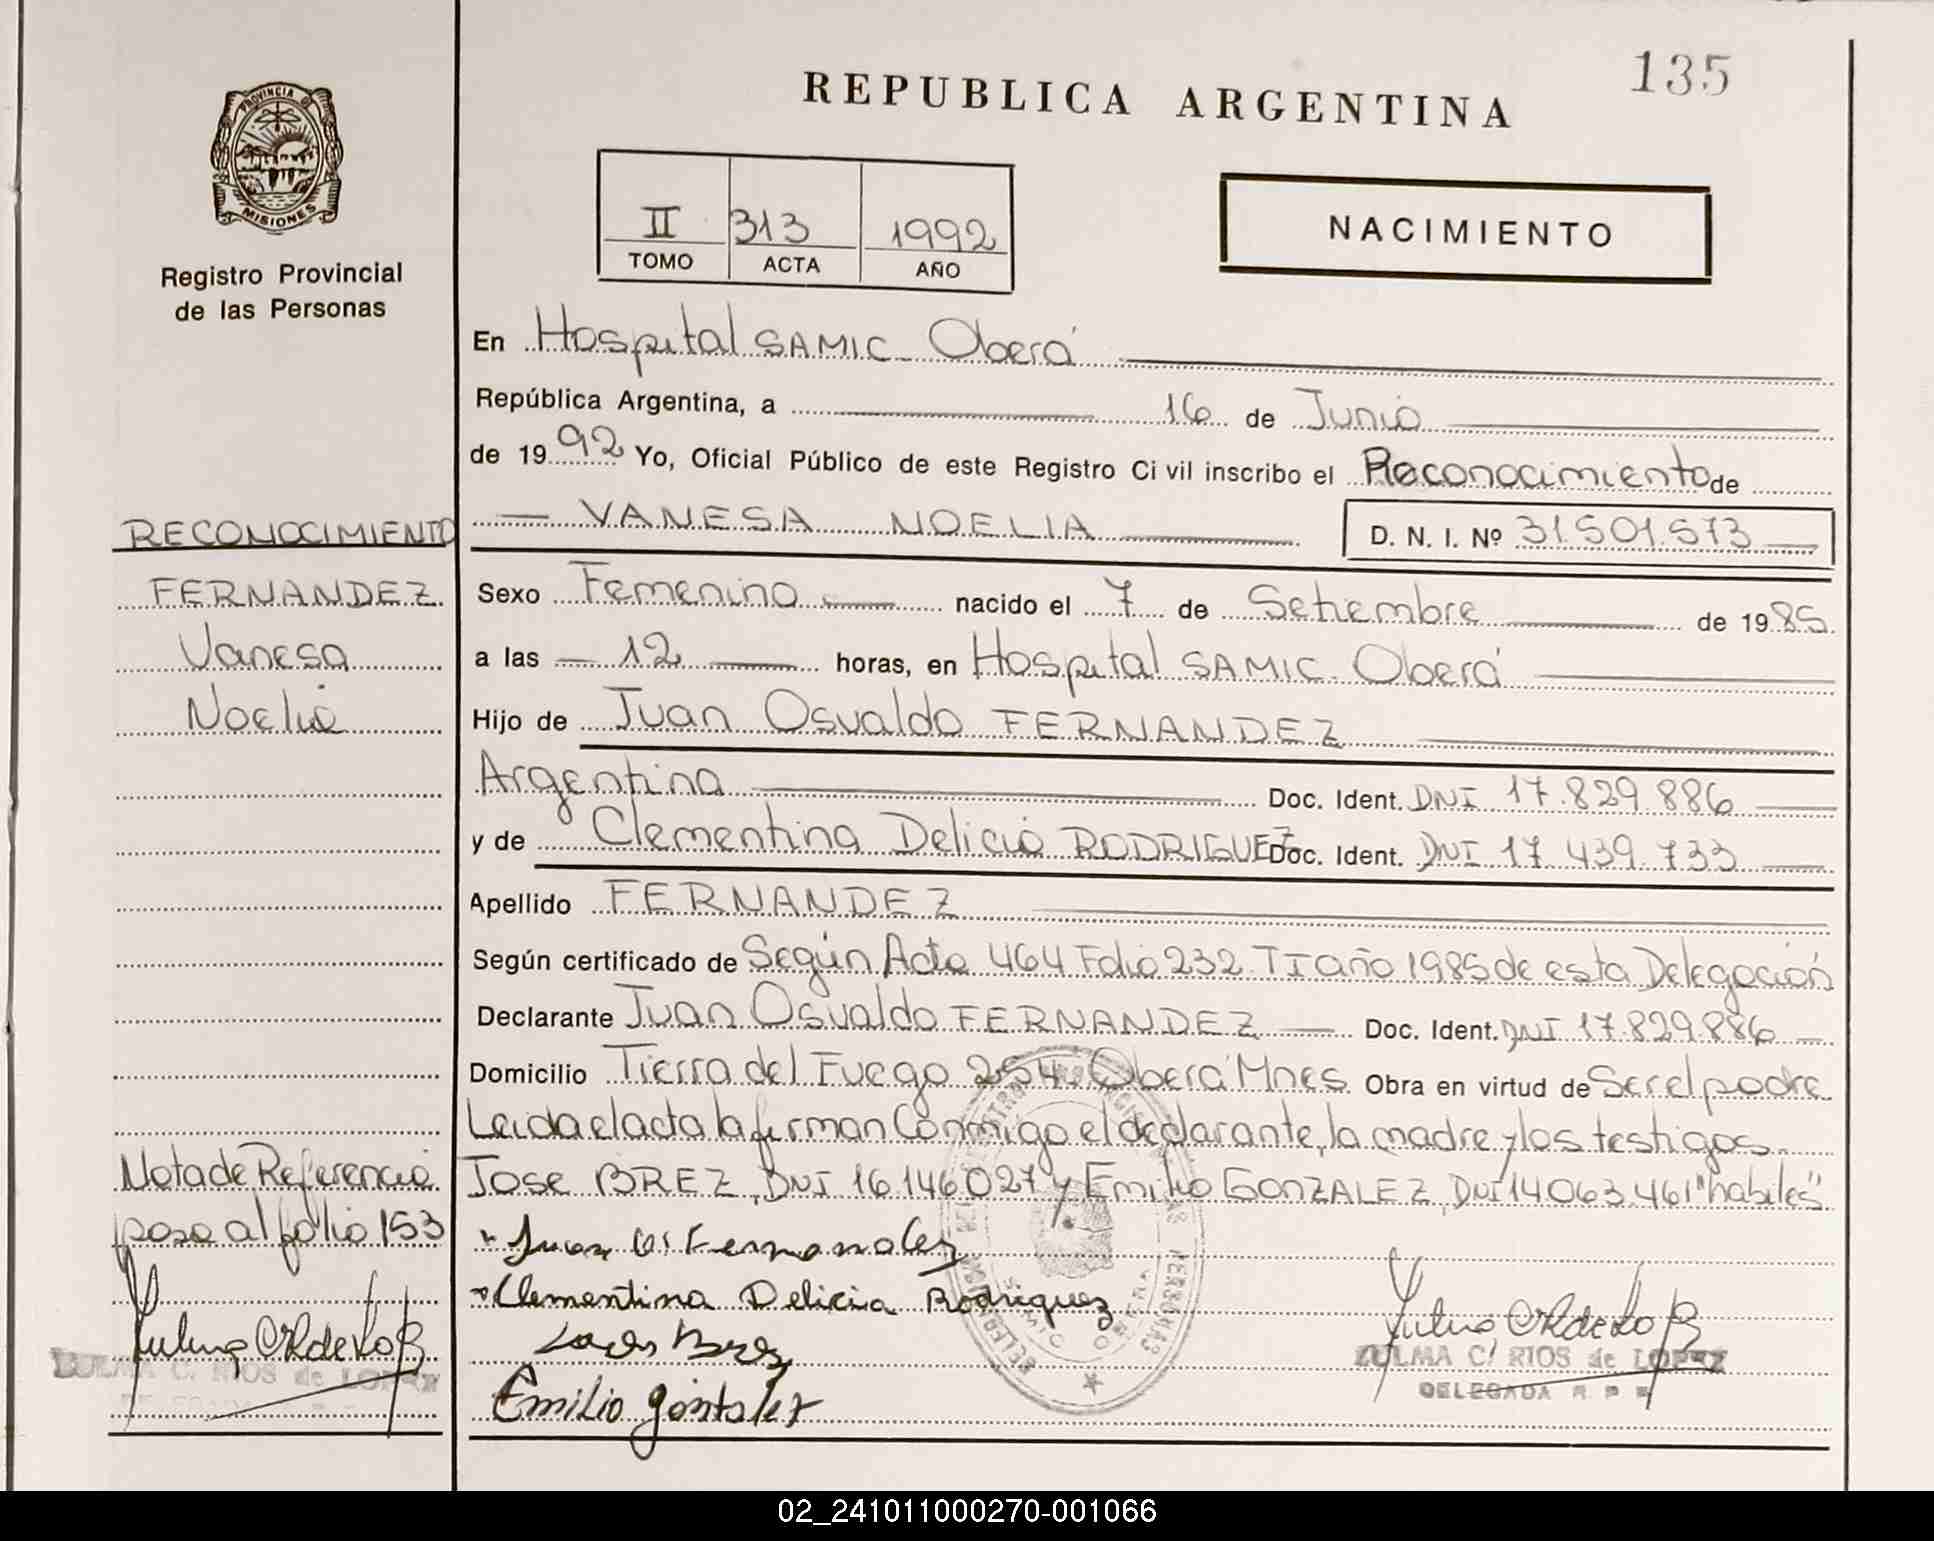 135
REPUBLICA ARGENTINA
PROVINCIA D
MISIONES
Registro Provincial
de las Personas
II 313 1992
TOMO ACTA AÑO
NACIMIENTO
En Hospital SAMIC Oberá
República Argentina, a 16 de Junio
de 1992 Yo, Oficial Público de este Registro Ci vil inscribo el Reconocimiento de
VANESA NOELIA D. N. I. Nº 31.501.573
RECONOCIMIENTO
FERNANDEZ
Vanesa
Noelia
Sexo Femenino nacido el 7 de Setiembre de 1985
a las 12 horas, en Hospital SAMIC. Oberá
Hijo de Juan Osvaldo FERNANDEZ
Argentina Doc. Ident. DNI 17.829.886
y de Clementina Delicia RODRIGUEZ Doc. Ident. DNI 17.439.733
Apellido FERNANDEZ
Según certificado de Según Acta 464 Folio 232 TI año 1985 de esta Delegación
Declarante Juan Osvaldo FERNANDEZ Doc. Ident. DNI 17.829.886
Domicilio Tierra del Fuego 254. Oberá Mnes. Obra en virtud de Ser el padre
Leida el acta la firman Conmigo el declarante, la madre y los testigos
JOSE BREZ, DNI 16.146.027 y Emilio GONZALEZ, DNI 14.063.461 "habiles"
Nota de Referencia
pasa al folio 153
Juan Os Fernandez
Clementina Delicia Rodriguez
Emilio gonzalez
ZULMA C. RIOS de LOPEZ
ZULMA C. RIOS de LOPEZ
DELEGADA R P P
02_241011000270-001066